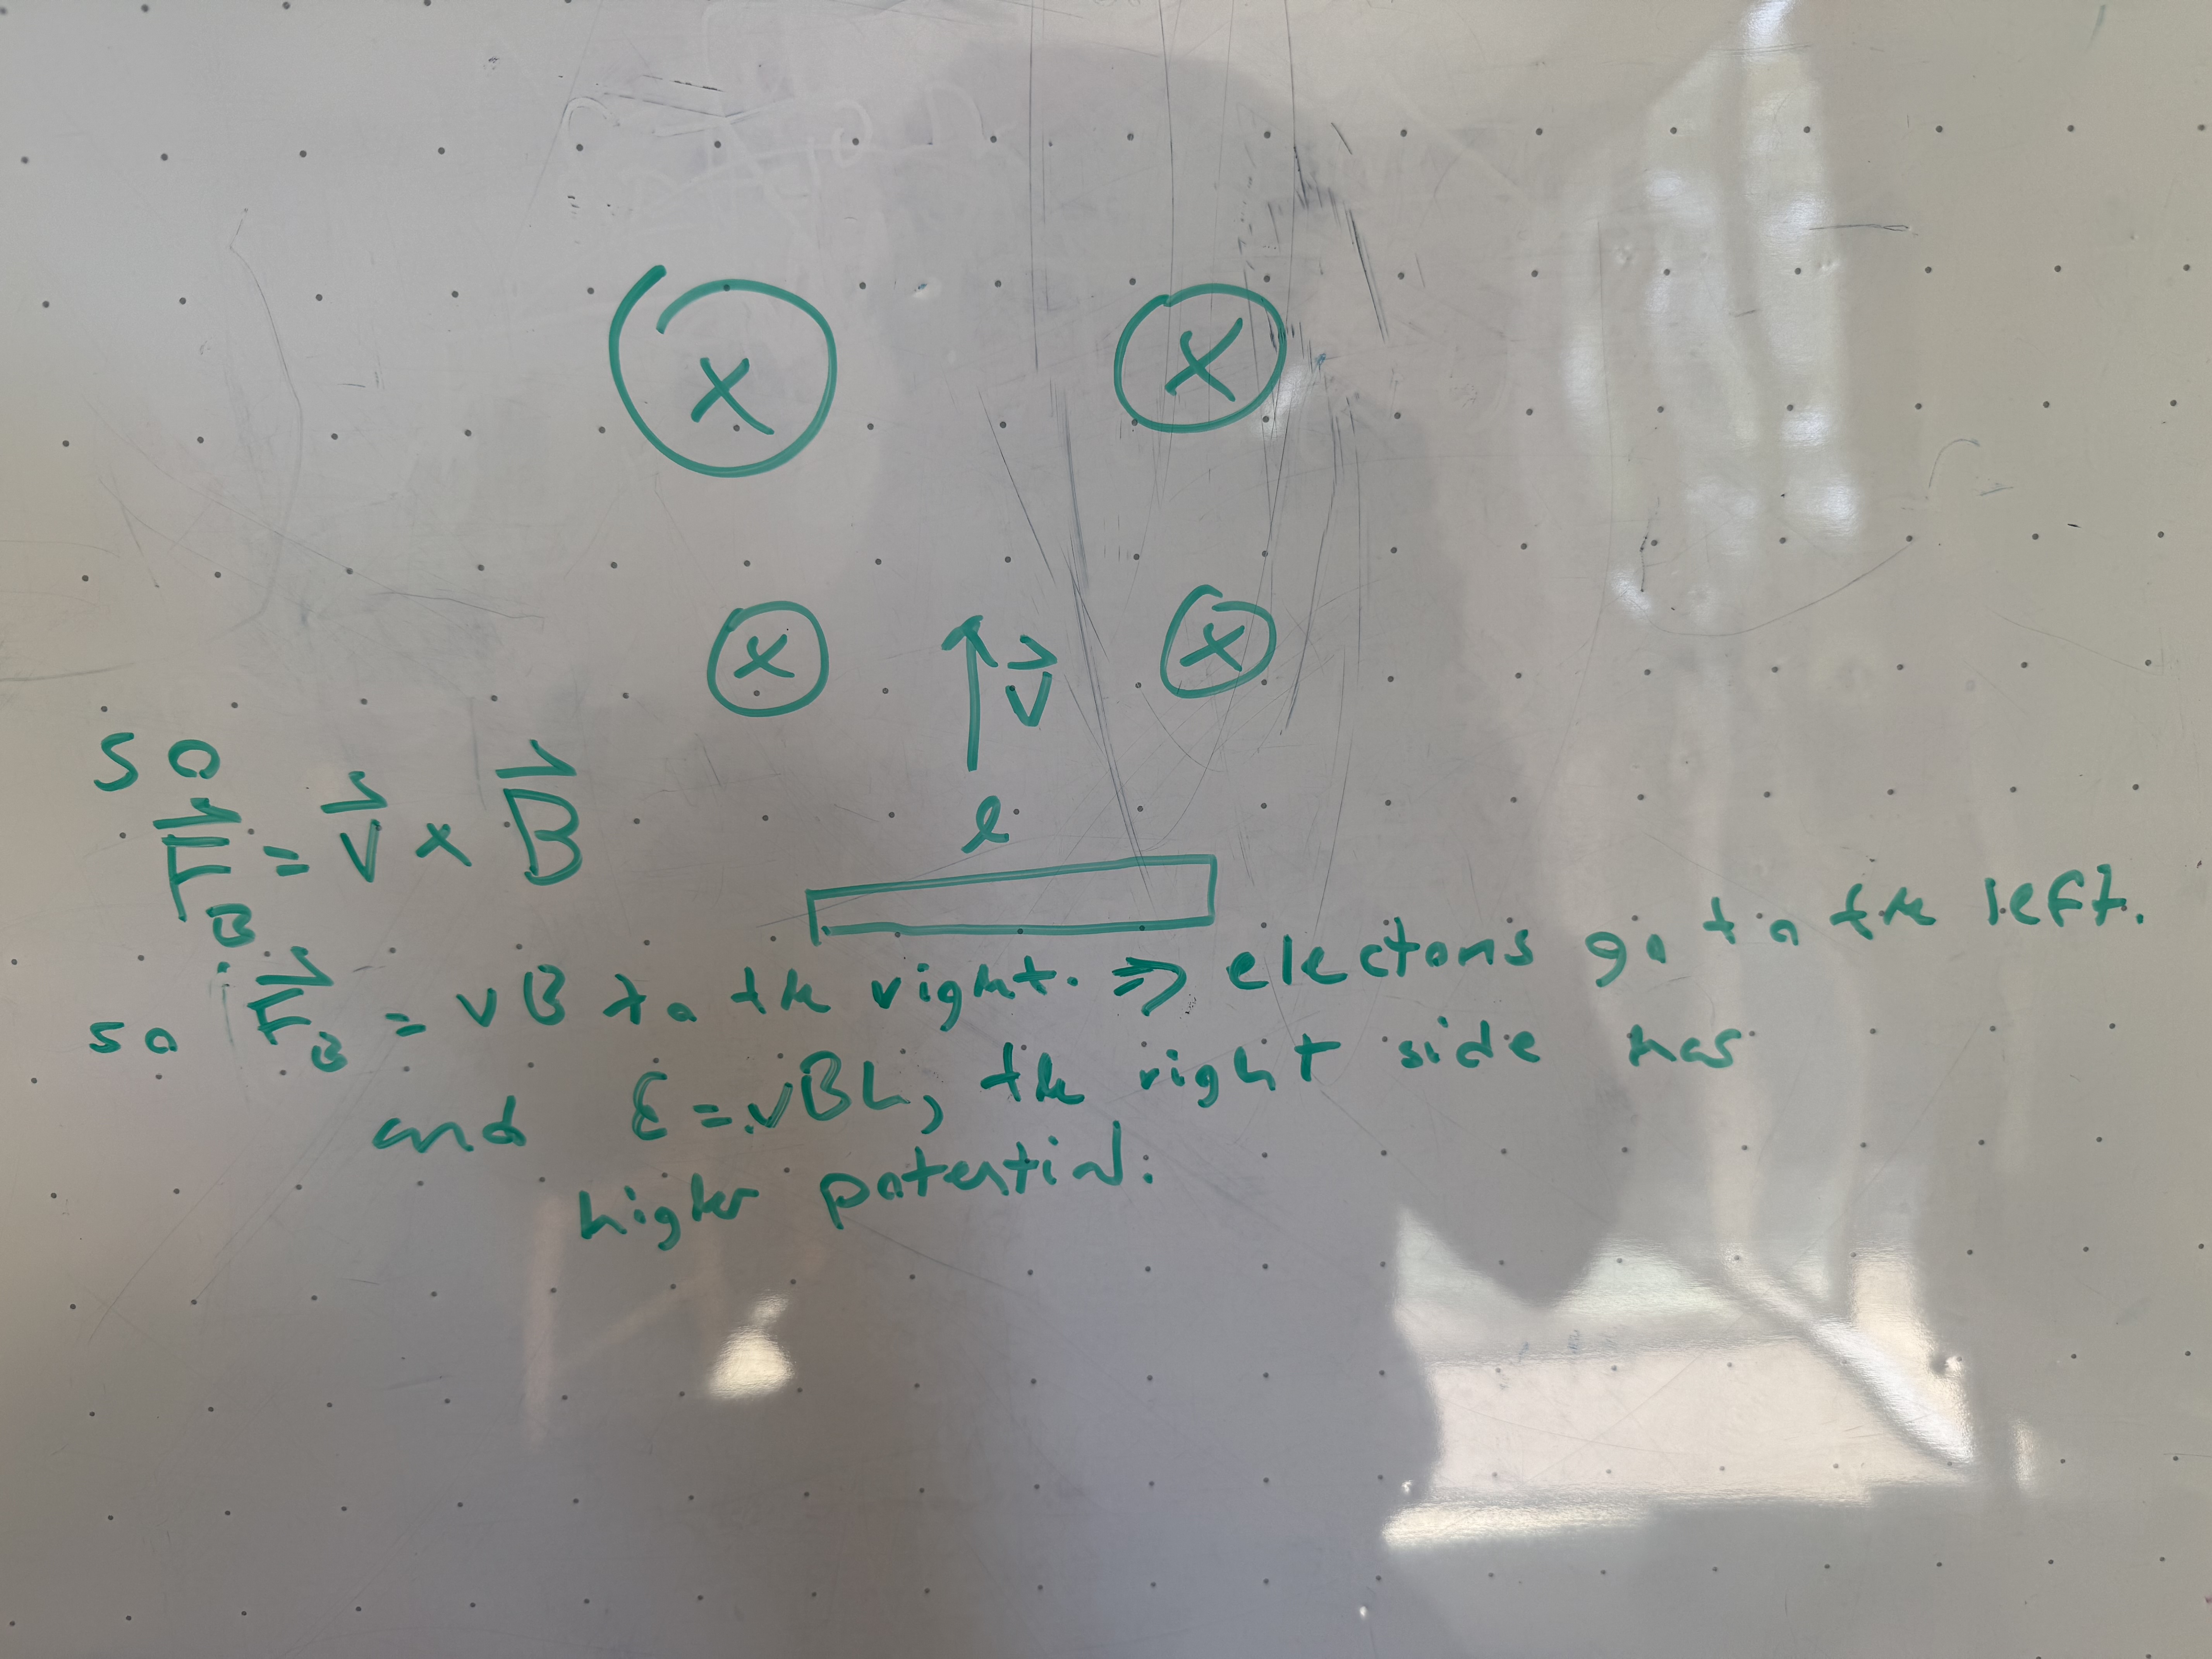 x x
x x
v⃗
so
F⃗_B = v⃗ × B⃗
ℓ
so F⃗_B = vB to the right. ⇒ electons go to the left.
and ℰ = vBL, the right side has
higher potential.